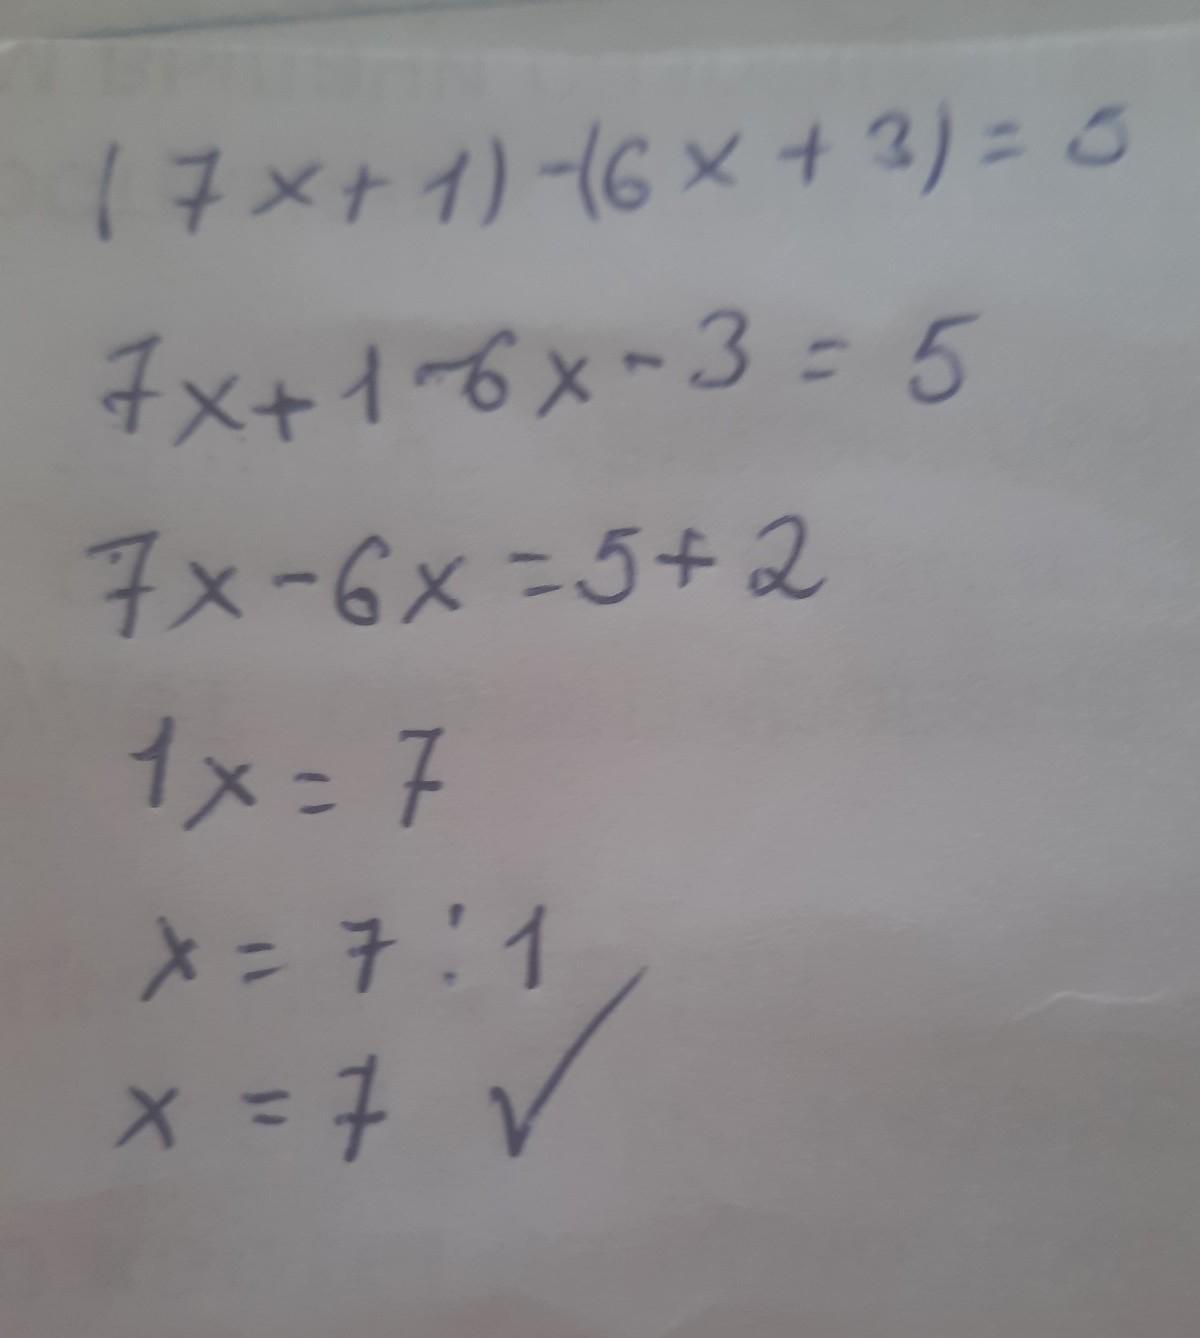 (7x+1)-(6x+3)=5
7x+1-6x-3=5
7x-6x=5+2
1x=7
x=7:1
x=7 ✓